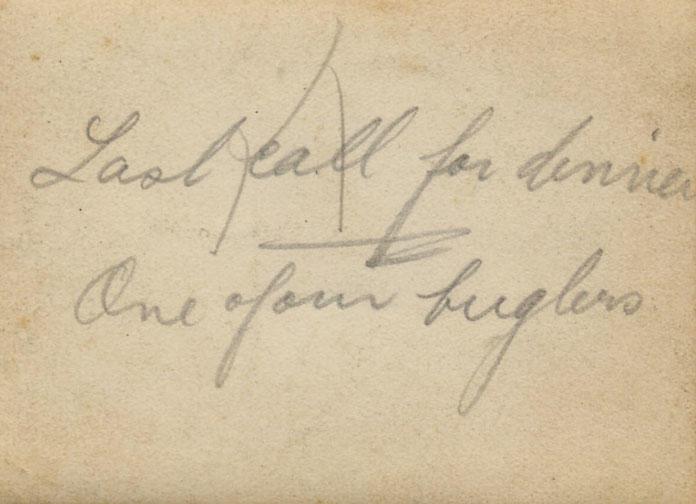 Last call for dinner
One of our buglers